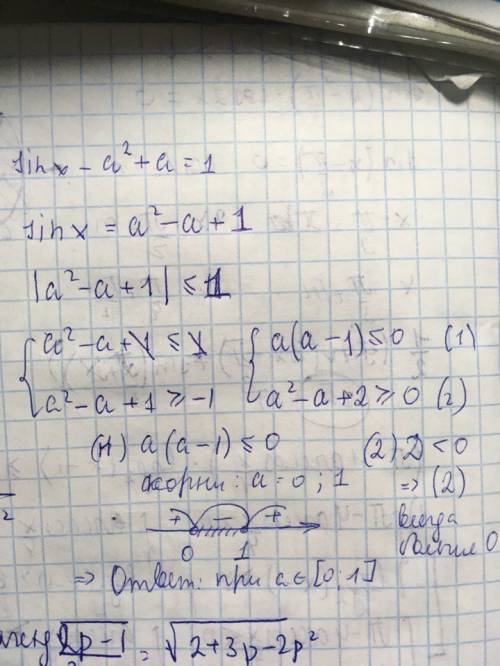 sin x - a² + a = 1
sin x = a² - a + 1
|a² - a + 1| ≤ 1
{ a² - a + 1 ≤ 1 { a(a - 1) ≤ 0 (1)
{ a² - a + 1 ≥ -1 { a² - a + 2 ≥ 0 (2)
(1) a(a - 1) ≤ 0 (2) D < 0
корни: a = 0; 1 => (2)
+ - + всегда
0 1 больше 0
=> Ответ: при a ∈ [0; 1]
2p - 1 = √2 + 3p - 2p²